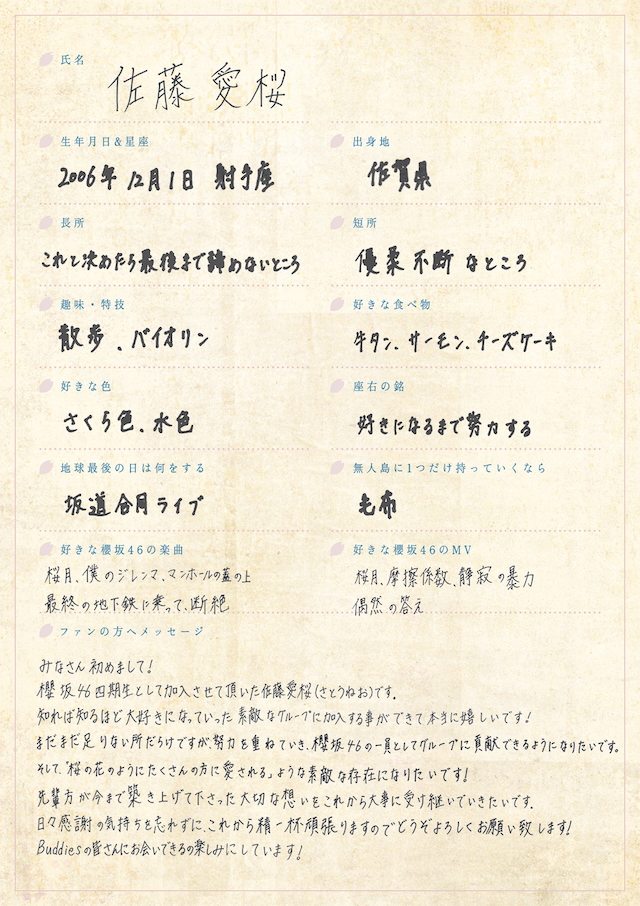 氏名
佐藤 愛桜
生年月日&星座
2006年 12月1日 射手座
出身地
佐賀県
長所
これと決めたら最後まで諦めないところ
短所
優柔不断 なところ
趣味・特技
散歩、バイオリン
好きな食べ物
牛タン、サーモン、チーズケーキ
好きな色
さくら色、水色
座右の銘
好きになるまで努力する
地球最後の日は何をする
坂道合同ライブ
無人島に1つだけ持っていくなら
毛布
好きな櫻坂46の楽曲
桜月、僕のジレンマ、マンホールの蓋の上
最終の地下鉄に乗って、断絶
好きな櫻坂46のMV
桜月、摩擦係数、静寂の暴力
偶然の答え
ファンの方へメッセージ
みなさん初めまして!
櫻坂46四期生として加入させて頂いた佐藤愛桜(さとうねお)です。
知れば知るほど大好きになっていった素敵なグループに加入する事ができて本当に嬉しいです!
まだまだ足りない所だらけですが、努力を重ねていき、櫻坂46の一員としてグループに貢献できるようになりたいです。
そして、"桜の花のようにたくさんの方に愛される"ような素敵な存在になりたいです!
先輩方が今まで築き上げて下さった大切な想いをこれから大事に受け継いでいきたいです。
日々感謝の気持ちを忘れずに、これから精一杯頑張りますのでどうぞよろしくお願い致します!
Buddiesの皆さんにお会いできるの楽しみにしています!